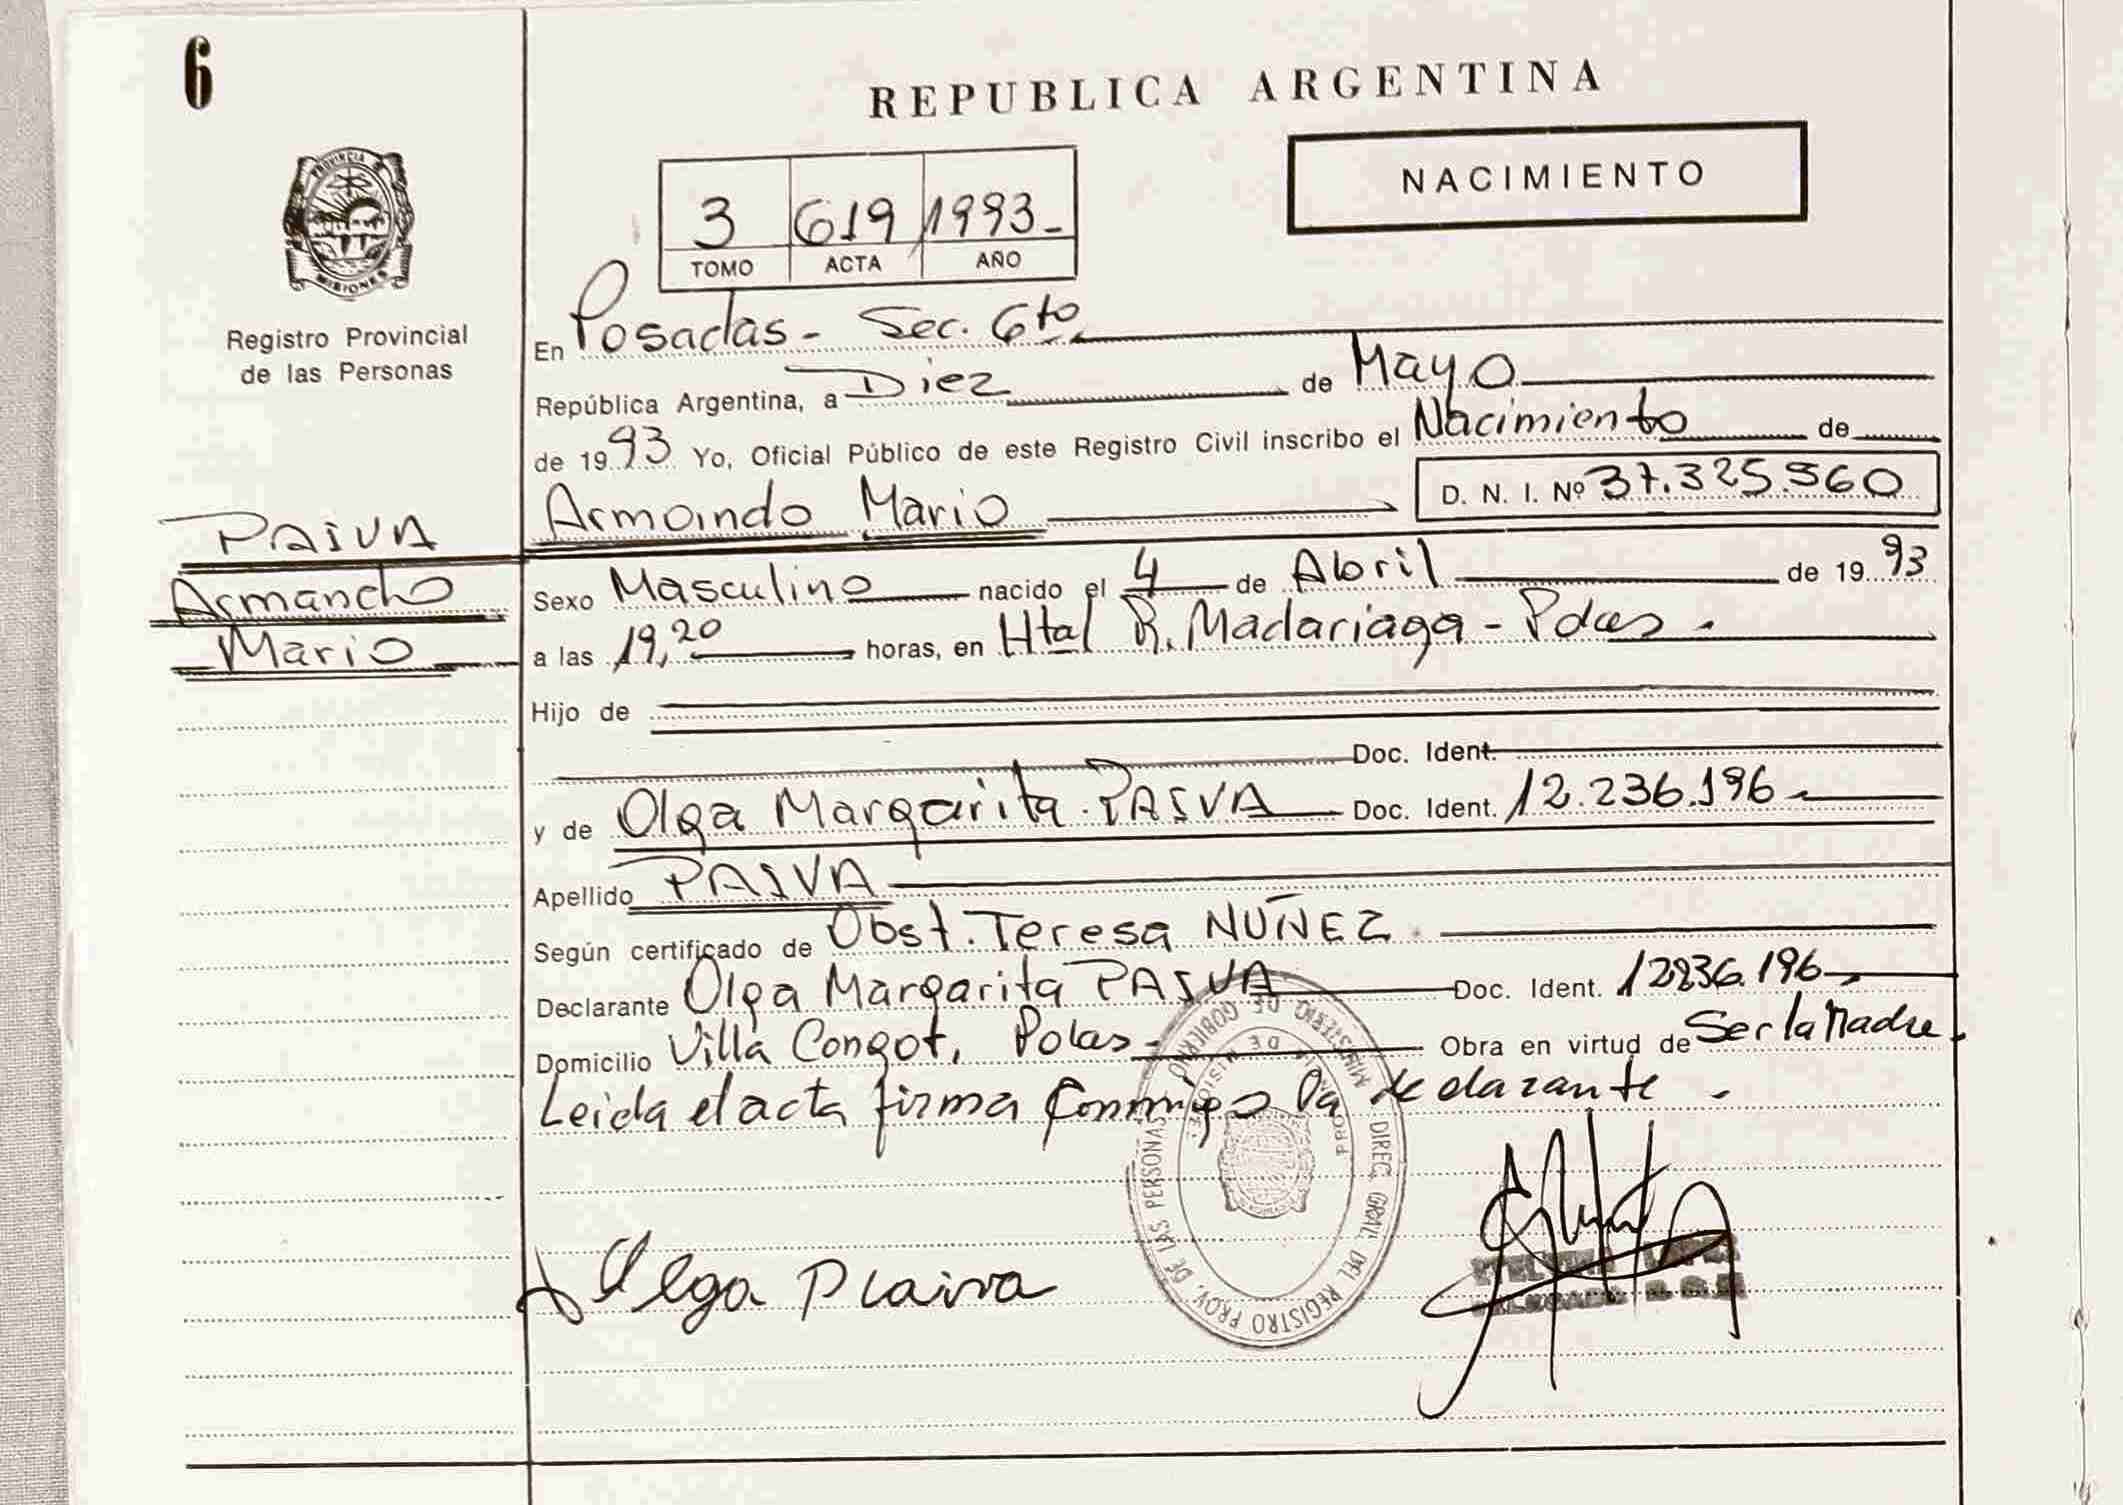 6
REPUBLICA ARGENTINA
NACIMIENTO
3 619 1993
TOMO ACTA AÑO
PROVINCIA
MISIONES
Registro Provincial
de las Personas
En Posadas - Sec. 6to
República Argentina, a Diez de Mayo
de 1993 Yo, Oficial Público de este Registro Civil inscribo el Nacimiento de
Armando Mario D. N. I. Nº 37.325.560
PAIVA
Armando
Mario
Sexo Masculino nacido el 4 de Abril de 1993
a las 19,20 horas, en Htal R. Madariaga - Pdas.
Hijo de
Doc. Ident.
y de Olga Margarita PAIVA Doc. Ident. 12.236.196
Apellido PAIVA
Según certificado de Obst. Teresa NUÑEZ
Declarante Olga Margarita PAIVA Doc. Ident. 12236.196
Domicilio Villa Congot, Pdas - Obra en virtud de Ser la Madre.
Leida el acta firma conmigo la declarante.
MINISTERIO DE GOBIERNO
DIREC. GRAL. DEL REGISTRO PROV. DE LAS PERSONAS
PROVINCIA DE MISIONES
Olga Paiva